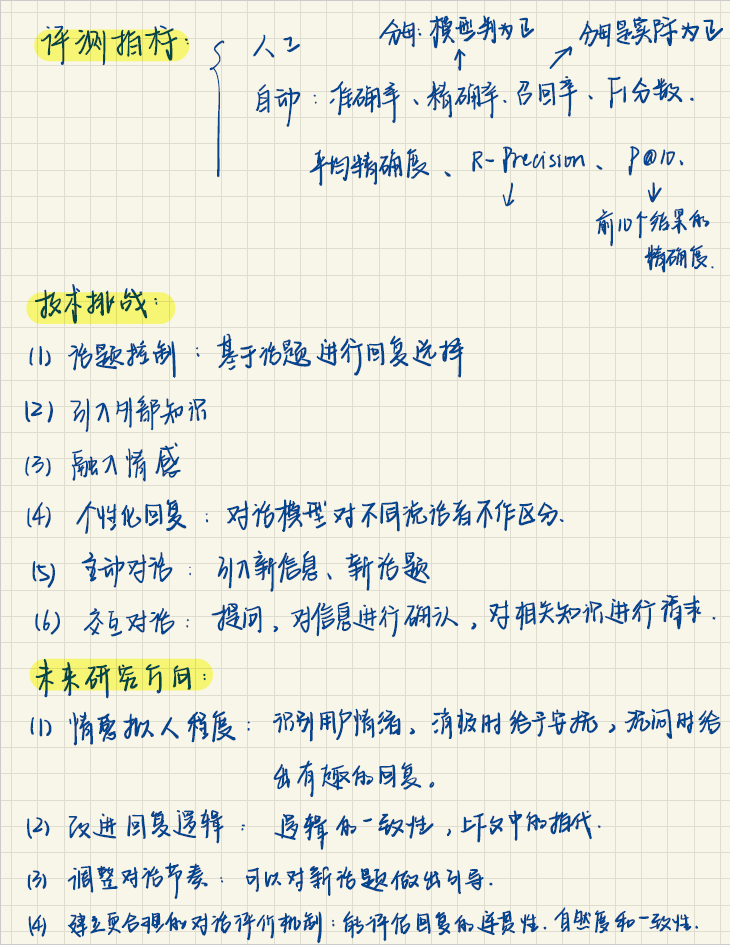 评测指标：
人工
分母：模型判为正
分母是实际为正
自动：准确率、精确率、召回率、F1分数、
平均精确度、R-Precision、P@10、
前10个结果的
精确度.
技术挑战：
(1) 话题控制：基于话题进行回复选择
(2) 引入外部知识
(3) 融入情感
(4) 个性化回复：对话模型对不同说话者不作区分.
(5) 主动对话：引入新信息、新话题
(6) 交互对话：提问，对信息进行确认，对相关知识进行请求.
未来研究方向：
(1) 情感拟人程度：识别用户情绪，消极时给予安抚，无问时给
出有趣的回复。
(2) 改进回复逻辑：逻辑的一致性，上下文中的指代.
(3) 调整对话节奏：可以对新话题做出引导.
(4) 建立更合理的对话评价机制：能评估回复的连贯性、自然度和一致性.